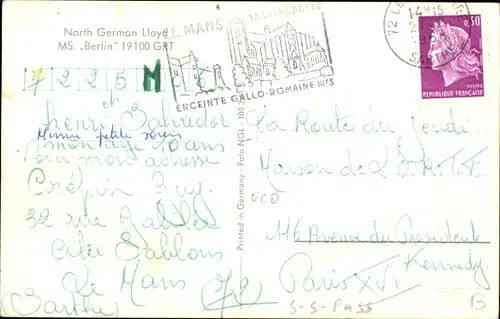 North German Lloyd
MS. „Berlin" 19100 GRT
LE MANS
SA CATHEDRALE
ENCEINTE GALLO-ROMAINE IIIeS
72 LE
14H15
SARTHE
0,30
REPUBLIQUE FRANCAISE
7 2 2 5 M 6
et
Henri Salvador
Minnie petite souris
mon age 10 ans
mon adresse
Crépin Guy
32 rue Galilée
Citée Sablons
Le Mans (72)
(Sarthe)
Printed in Germany · Foto NGL
La Route du Jeudi
Maison de l'O.R.T.F.
OCD
116 Avenue du Président
Kennedy
Paris XVI
S-S-PASS
B